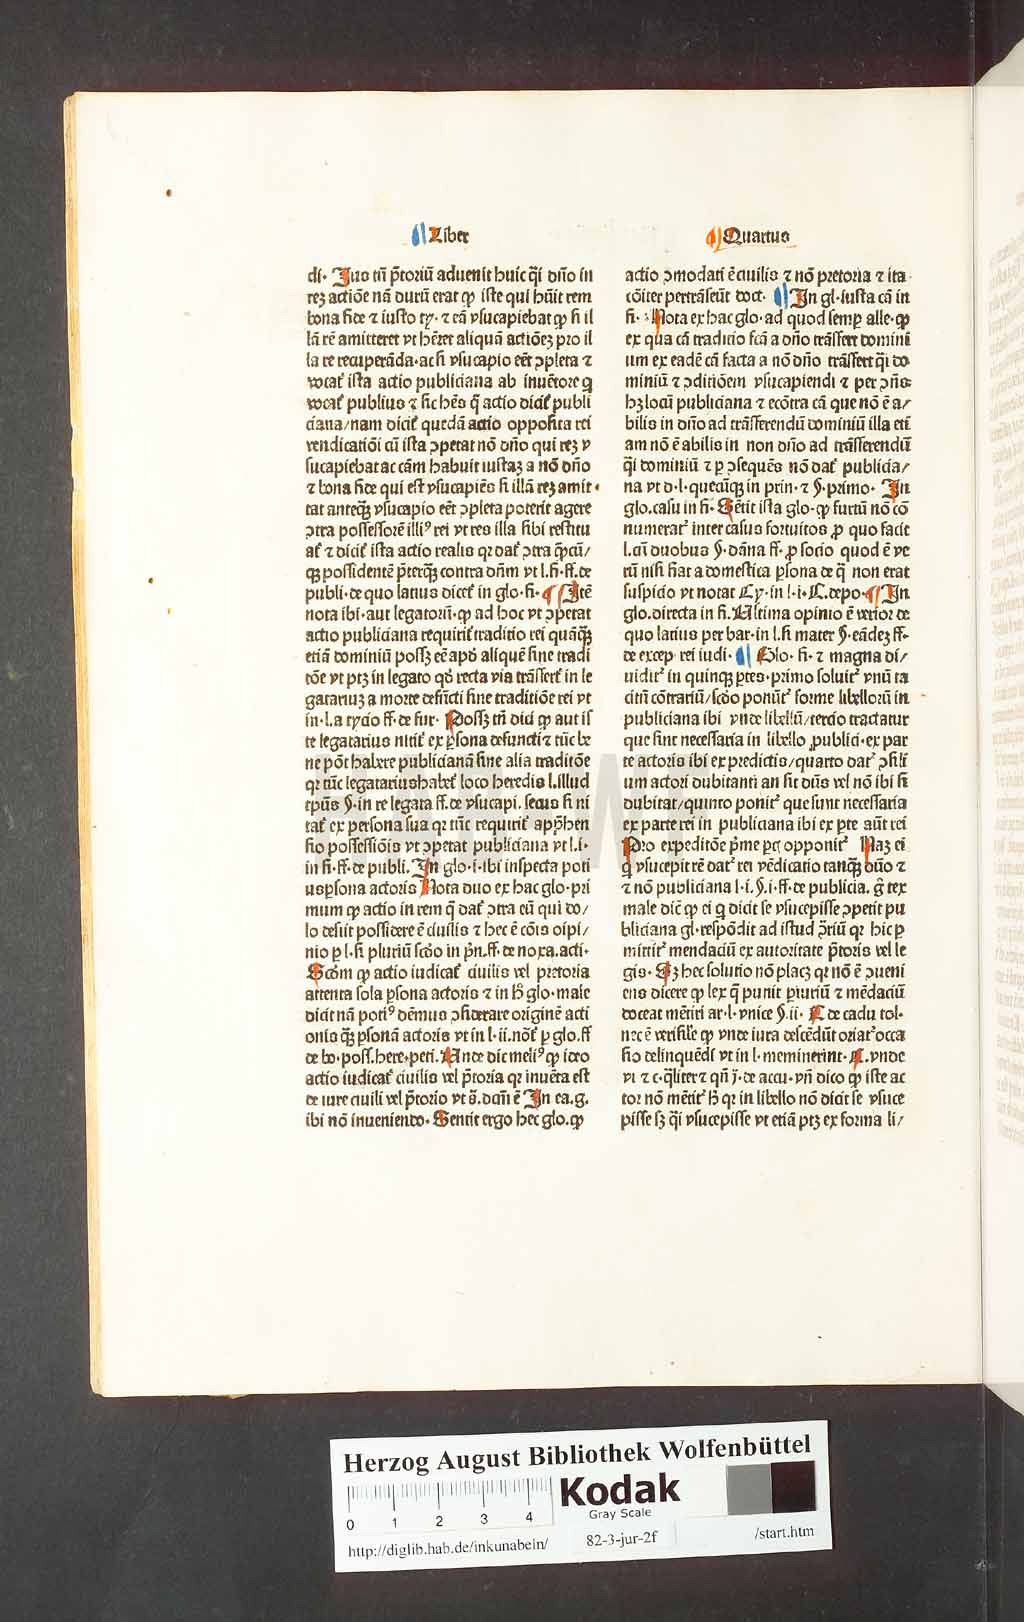 Liber
Quartus
di. Ius tñ p̃toriũ aduenit huic q̃i dño in
reʒ actiõe nã durũ erat ꝙ iste qui hũit rem
bona fide ⁊ iusto ty. ⁊ cã vsucapiebat ꝙ si il
lã rẽ amitteret vt hẽret aliquã actiõeʒ pro il
la re recuperãda. ac si vsucapio eẽt ↄpleta ⁊
vocat᷑ ista actio publiciana ab inuẽtore q̃
vocat᷑ publius ⁊ sic hẽs q̃ actio dicit᷑ publi
ciana/nam dicit᷑ quedã actio opposita rei
vendicatiõi cũ ista ↄpetat nõ dño qui reʒ v
sucapiebat ac cãm habuit iustaʒ a nõ dño
⁊ bona fide qui est vsucapiẽs si illã reʒ amit
tat anteq̃ʒ vsucapio eẽt ↄpleta poterit agere
ↄtra possessorẽ illiꝰ rei vt res illa sibi restitu
at᷑ ⁊ dicit᷑ ista actio realis qr dat᷑ ↄtra q̃mcũ/
qʒ possidentẽ p̃terq̃ʒ contra dñm vt l.fi.ff.de
publi. de quo latius dicet᷑ in glo.fi. Itẽ
nota ibi. aut legatorũ. ꝙ ad hoc vt ↄpetat
actio publiciana requirit᷑ traditio rei quãq̃ʒ
etiã dominiũ possʒ eẽ apd̾ aliquẽ sine tradi
tõe vt ptʒ in legato qd̾ recta via trãsfert᷑ in le
gatariuʒ a morte defũcti sine traditiõe rei vt
in.l.a tycio ff.de fur. Possʒ tñ dici ꝙ aut is
te legatarius nitit᷑ ex ꝑsona defuncti ⁊ tũc be
ne põt habere publicianã sine alia traditõe
qr tũc legatarius habet᷑ loco heredis l.illud
tpũs §.in re legata ff.de vsucapi. secus si ni
tat᷑ ex persona sua qr tũc requirit᷑ app̃hen
sio possessiõis vt ↄpetat publiciana vt l.i.
in fi.ff.de publi. In glo.i.ibi inspecta poti
us ꝑsona actoris Nota duo ex hac glo.pri
mum ꝙ actio in rem q̃ dat᷑ ↄtra eũ qui do/
lo desiit possidere ẽ ciuilis ⁊ hec ẽ cõis oipi/
nio ꝑ l.fi pluriũ scd̾o in pñ.ff.de noxa.acti.
Scd̾m ꝙ actio iudicat᷑ ciuilis vel pretoria
attenta sola ꝑsona actoris ⁊ in h̾ glo.male
dicit nã potiꝰ dẽmus ↄsiderare originẽ acti
onis q̃ʒ ꝑsonã actoris vt in l.ii.nõt᷑ ꝑ glo.ff
de bo.poss.here.peti. Unde dic meliꝰ ꝙ ideo
actio iudicat᷑ ciuilis vel p̃toria qr inuẽta est
de iure ciuili vel p̃torio vt s̾.dcm̃ ẽ In ea.g.
ibi nõ inueniendo. Sentit ergo hec glo.ꝙ
actio ↄmodati ẽ ciuilis ⁊ nõ pretoria ⁊ ita
cõiter pertrãseũt doct. In gl.iusta cã in
fi. Nota ex hac glo.ad quod semꝑ alle.ꝙ
ex qua cã traditio fcã a dño trãsfert domini
um ex eadẽ cã facta a nõ dño trãsfert q̃i do
miniũ ⁊ ↄditiõem vsucapiendi ⁊ per ↄñs
hʒ locũ publiciana ⁊ ecõtra cã que nõ ẽ a/
bilis in dño ad trãsferendũ dominiũ illa eti
am nõ ẽ abilis in non dño ad trãsferendũ
q̃i dominiũ ⁊ ꝑ ↄsequẽs nõ dat᷑ publicia/
na vt d.l.quecũqʒ in prin.⁊ §.primo. In
glo.casu in fi. Sẽtit ista glo.ꝙ furtũ nõ cõ
numerat᷑ inter casus fortuitos ꝓ quo facit
l.cũ duobus §.dãna ff.ꝓ socio quod ẽ ve
rũ nisi fiat a domestica ꝑsona de q̃ non erat
suspicio vt notat Cy.in l.i.C.depo. In
glo.directa in fi. Ultima opinio ẽ verior de
quo latius per bar.in l.si mater §.eãdeʒ ff.
de excep. rei iudi. Glo.fi.⁊ magna di/
uidit᷑ in quinqʒ ꝑtes.primo soluit᷑ vnũ ta
citũ cõtrariũ/scd̾o ponũt᷑ forme libellorũ in
publiciana ibi vnde libellũ/tercio tractatur
que sint necessaria in libello ꝓ publici.ex par
te actoris ibi ex predictis/quarto dat᷑ ↄsili
um actori dubitanti an sit dñs vel nõ ibi si
dubitat/quinto ponit᷑ que sunt necessaria
ex parte rei in publiciana ibi ex ꝑte aũt rei
Pro expeditõe p̃me ꝑtꝭ opponit᷑ Naʒ ei
q̃ vsucepit rẽ dat᷑ rei vẽdicatio tanq̃ʒ dño ⁊
⁊ nõ publiciana l.i.§.i.ff.de publicia. g̃ tex
male dic̃ ꝙ ei q̃ dicit se vsucepisse ↄpetit pu
bliciana gl.respõdit ad istud ↄ̃riũ qr hic ꝑ
mittit᷑ mendaciũ ex autoritate p̃toris vel le
gis. Sʒ hec solutio nõ placʒ qr nõ ẽ ↄueni
ens dicere ꝙ lex q̃ punit ꝑiuriũ ⁊ mẽdaciũ
doceat mẽtiri ar.l.vnice §.ii. C de cadu tol.
nec ẽ verisile ꝙ vnde iura descẽdũt oriat᷑ occa
sio delinquẽdi vt in l.meminerint.C.vnde
vi ⁊ c.q̃liter ⁊ qñ j.de accu.vñ dico ꝙ iste ac
tor nõ mẽtit᷑ h̾ qr in libello nõ dicit se vsuce
pisse sʒ q̃i vsucepisse vt etiã ptʒ ex forma li/
HAB WF
Herzog August Bibliothek Wolfenbüttel
0 1 2 3 4
Kodak
Gray Scale
http://diglib.hab.de/inkunabeln/
82-3-jur-2f
/start.htm